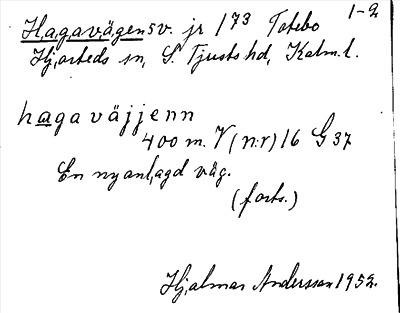 Hagavägen sv. jr 173 Totebo 1-2
Hjorteds sn, S. Tjusts hd, Kalm. l.
hagaväjjenn
400 m. V (nr) 16 G 37
En nyanlagd väg.
(forts.)
Hjalmar Andersson 1952.